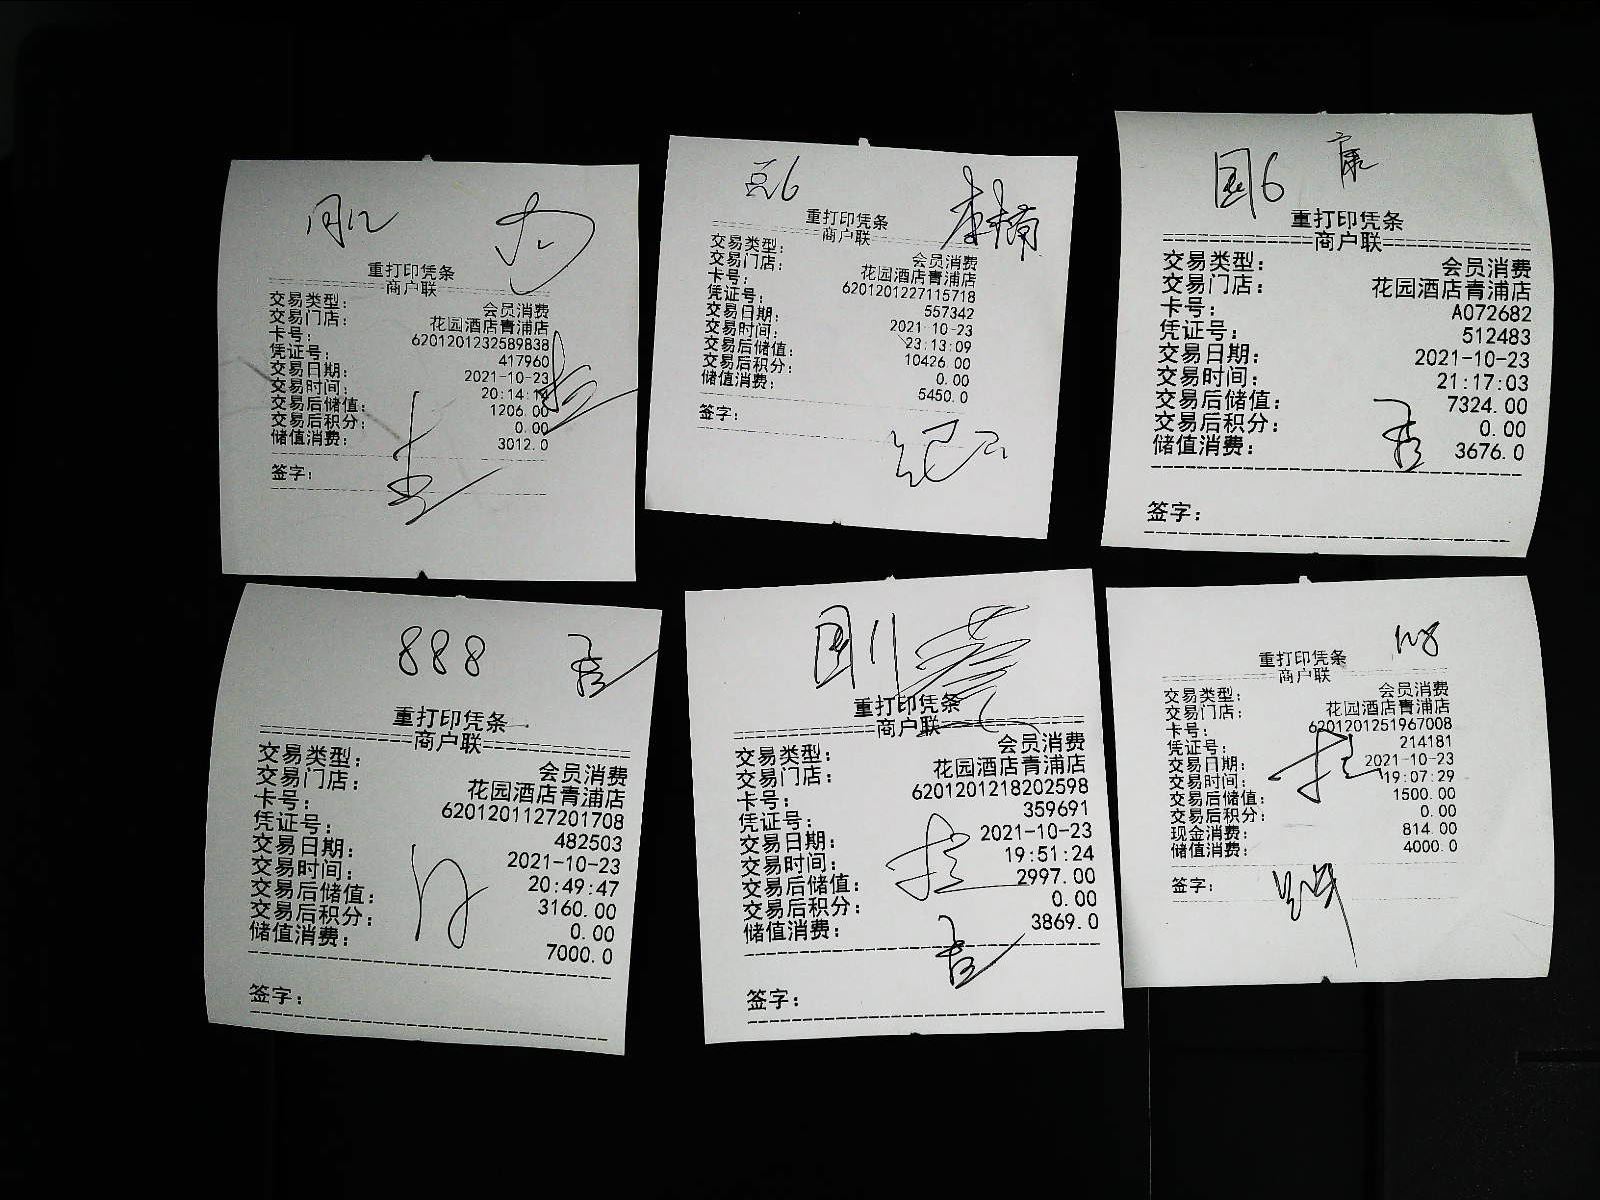 重打印凭条
商户联
交易类型: 会员消费
交易门店: 花园酒店青浦店
卡号: 6201201232589838
凭证号: 417960
交易日期: 2021-10-23
交易时间: 20:14:
交易后储值: 1206.00
交易后积分: 0.00
储值消费: 3012.0
签字:
豆6
重打印凭条
商户联
交易类型: 会员消费
交易门店: 花园酒店青浦店
卡号: 6201201227115718
凭证号: 557342
交易日期: 2021-10-23
交易时间: 23:13:09
交易后储值: 10426.00
交易后积分: 0.00
储值消费: 5450.0
签字:
国6 康
重打印凭条
商户联
交易类型: 会员消费
交易门店: 花园酒店青浦店
卡号: A072682
凭证号: 512483
交易日期: 2021-10-23
交易时间: 21:17:03
交易后储值: 7324.00
交易后积分: 0.00
储值消费: 3676.0
签字:
888
重打印凭条
商户联
交易类型: 会员消费
交易门店: 花园酒店青浦店
卡号: 6201201127201708
凭证号: 482503
交易日期: 2021-10-23
交易时间: 20:49:47
交易后储值: 3160.00
交易后积分: 0.00
储值消费: 7000.0
签字:
国11
重打印凭条
商户联
交易类型: 会员消费
交易门店: 花园酒店青浦店
卡号: 6201201218202598
凭证号: 359691
交易日期: 2021-10-23
交易时间: 19:51:24
交易后储值: 2997.00
交易后积分: 0.00
储值消费: 3869.0
签字:
重打印凭条
商户联
交易类型: 会员消费
交易门店: 花园酒店青浦店
卡号: 6201201251967008
凭证号: 214181
交易日期: 2021-10-23
交易时间: 19:07:29
交易后储值: 1500.00
交易后积分: 0.00
现金消费: 814.00
储值消费: 4000.0
签字: